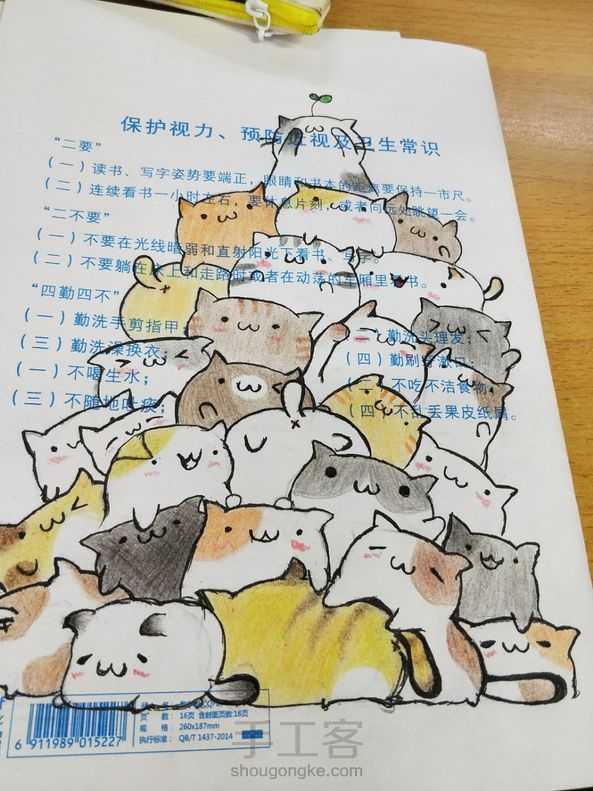 保护视力、预防近视及卫生常识
“二要”
（一）读书、写字姿势要端正，眼睛和书本的距离要保持一市尺。
（二）连续看书一小时左右，要休息片刻，或者向远处眺望一会。
“二不要”
（一）不要在光线暗弱和直射阳光下看书、写字。
（二）不要躺在床上和走路时或者在动荡的车厢里看书。
“四勤四不”
（一）勤洗手剪指甲 （二）勤洗头理发；
（三）勤洗澡换衣； （四）勤刷牙漱口；
（一）不喝生水； （二）不吃不洁食物
（三）不随地吐痰； （四）不乱丢果皮纸屑。
页 数：16页 含封面页数18页
规 格：260x187mm
执行标准：QB/T 1437-2014
6 911989 015227
手工客
shougongke.com